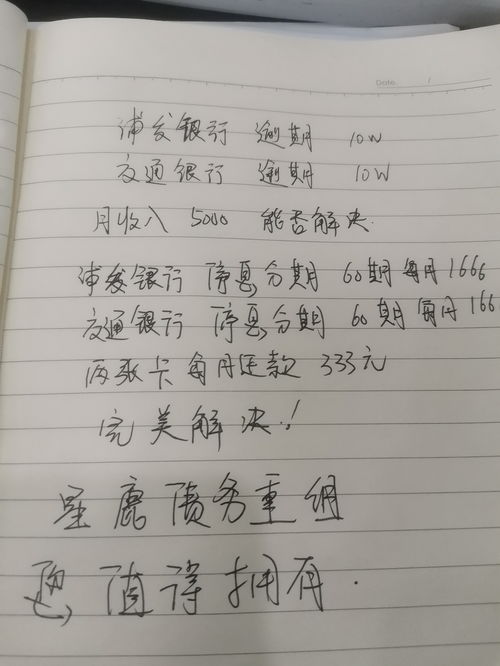 Date. 1
浦发银行 逾期 10W
交通银行 逾期 10W
月收入 5000 能否解决.
浦发银行 停息分期 60期 每月1666
交通银行 停息分期 60期 每月166
两张卡 每月还款 333元
完美解决!
星鹿债务重组
您值得拥有.